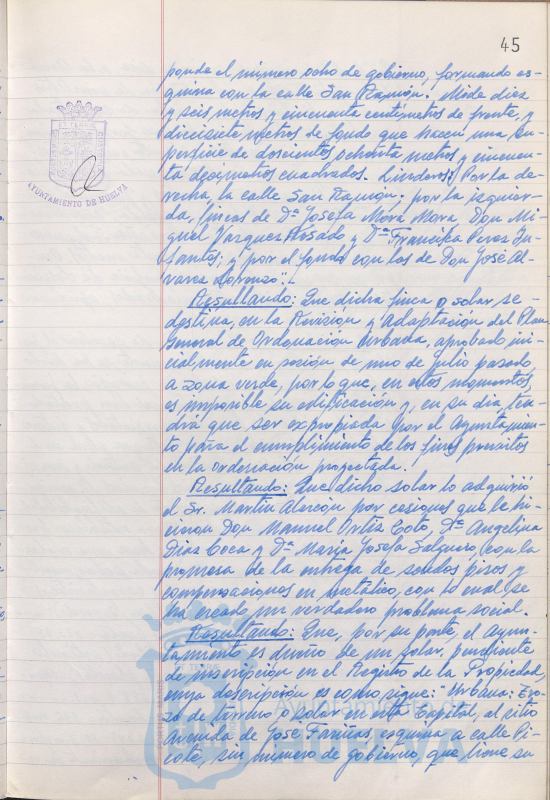 45
ponde el número ocho de gobierno, formando es-
quina con la calle San Ramón. Mide diez
y seis metros y cincuenta centímetros de frente, y
diecisiete metros de fondo que hacen una su-
perficie de doscientos ochenta metros y cincuen-
ta decímetros cuadrados. Linderos: Por la de-
recha, la calle San Ramón; por la izquier-
da, fincas de Dª Josefa Mora Mora, Don Mi-
guel Vazquez Rosado y Dª Francisca Perez In-
fantes; y por el fondo con las de Don José Al-
varez Lorenzo".-
Resultando: Que dicha finca o solar se
destina, en la Revisión y Adaptación del Plan
General de Ordenación Urbana, aprobado ini-
cialmente en sesión de uno de Julio pasado,
a zona verde, por lo que, en estos momentos,
es imposible su edificación y, en su día, ten-
drá que ser expropiada por el Ayuntamien-
to para el cumplimiento de los fines previstos
en la ordenación proyectada.
Resultando: Que dicho solar lo adquirió
el Sr. Martín Alarcón por cesiones que le hi-
cieron Don Manuel Ortiz Coto, Dª Angelina
Diaz Coca y Dª María Josefa Salguero, con la
promesa de la entrega de sendos pisos y
compensaciones en metálico, con lo cual se
ha creado un verdadero problema social.
Resultando: Que, por su parte, el Ayun-
tamiento es dueño de un solar, pendiente
de inscripción en el Registro de la Propiedad,
cuya descripción es como sigue: "Urbana: Tro-
zo de terreno o solar en esta Capital, al sitio
Avenida de José Fariñas, esquina a calle Pi-
cote, sin número de gobierno, que tiene su
AYUNTAMIENTO DE HUELVA
Ayuntamiento de
HUELVA